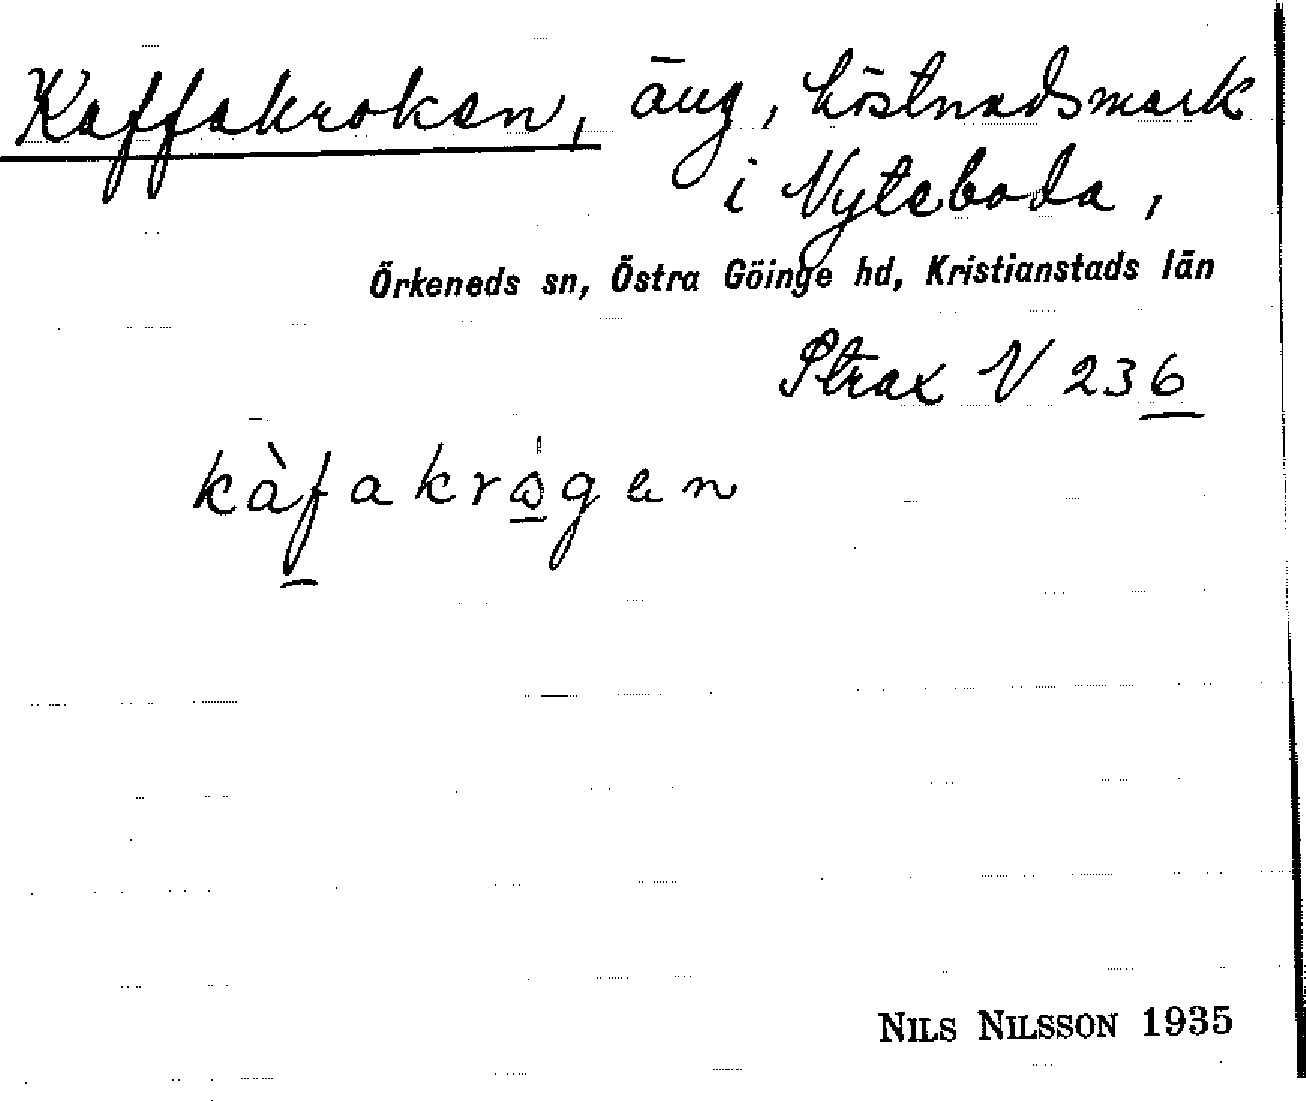 Kaffakroken, äng, höstnadsmark
i Nyteboda,
Örkeneds sn, Östra Göinge hd, Kristianstads län
Strax V 236
kàfakrågen
NILS NILSSON 1935